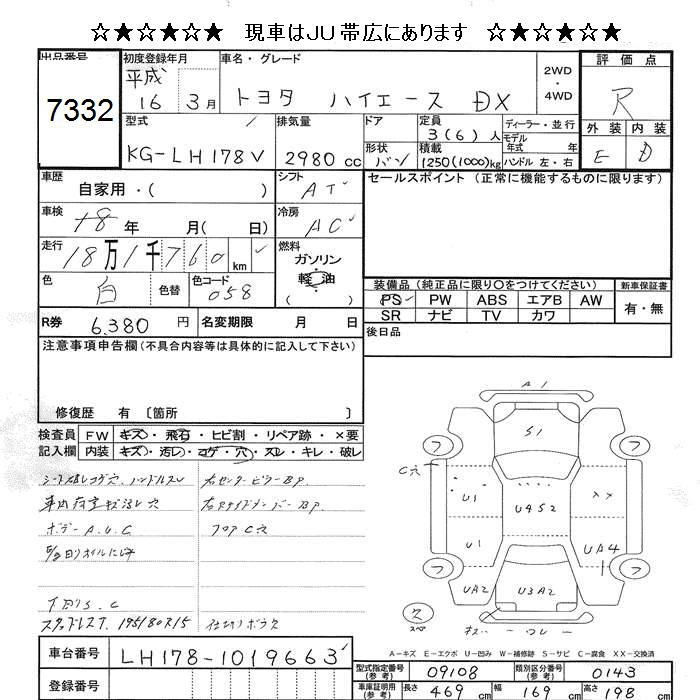 ☆★☆★☆★ 現車はJU帯広にあります ☆★☆★☆★
出品番号
7332
初度登録年月
平成
16 3月
車名・グレード
トヨタ ハイエース DX
2WD
・
4WD
評価点
R
外装 内装
E D
型式
KG-LH178V
排気量
2980 cc
ドア
形状
バン
定員
3(6)人
積載
1250(1000)kg
ディーラー・並行
モデル
年式 年
ハンドル 左・右
車歴
自家用・( )
シフト
AT
セールスポイント (正常に機能するものに限ります)
車検
18年 月( 日)
冷房
AC
走行
18万1千760 km
燃料
ガソリン
軽油
( )
色
白
色替
色コード
058
装備品 (純正品に限り○をつけてください)
PS PW ABS エアB AW
SR ナビ TV カワ
新車保証書
有・無
R券 6,380 円
名変期限 月 日
後日品
注意事項申告欄(不具合内容等は具体的に記入して下さい)
修復歴 有 〔箇所 〕
検査員
記入欄
FW キズ・飛石・ヒビ割・リペア跡・×要
内装 キズ・汚レ・コゲ・穴・スレ・キレ・破レ
シート破レコゲ穴、ハンドルスレ
右センターピラーBP
車内荷室キズ汚レ穴
ボデーA.U.C
フロアC穴
下廻りS.C
スタッドレスT. 195/80R15
仕切リボラス
A1
S1
C穴
U1
U4S2
XX
U1
UA4
UA2
U3A2
フ
フ
フ
フ
ス
スペア
A-キズ E-エクボ U-凹み W-補修跡 S-サビ C-腐食 XX-交換済
車台番号
LH178-1019663
登録番号
型式指定番号
(参考)
09108
類別区分番号
(参考)
0143
車庫証明用
(参考)
長さ 469 cm 幅 169 cm 高さ 198 cm